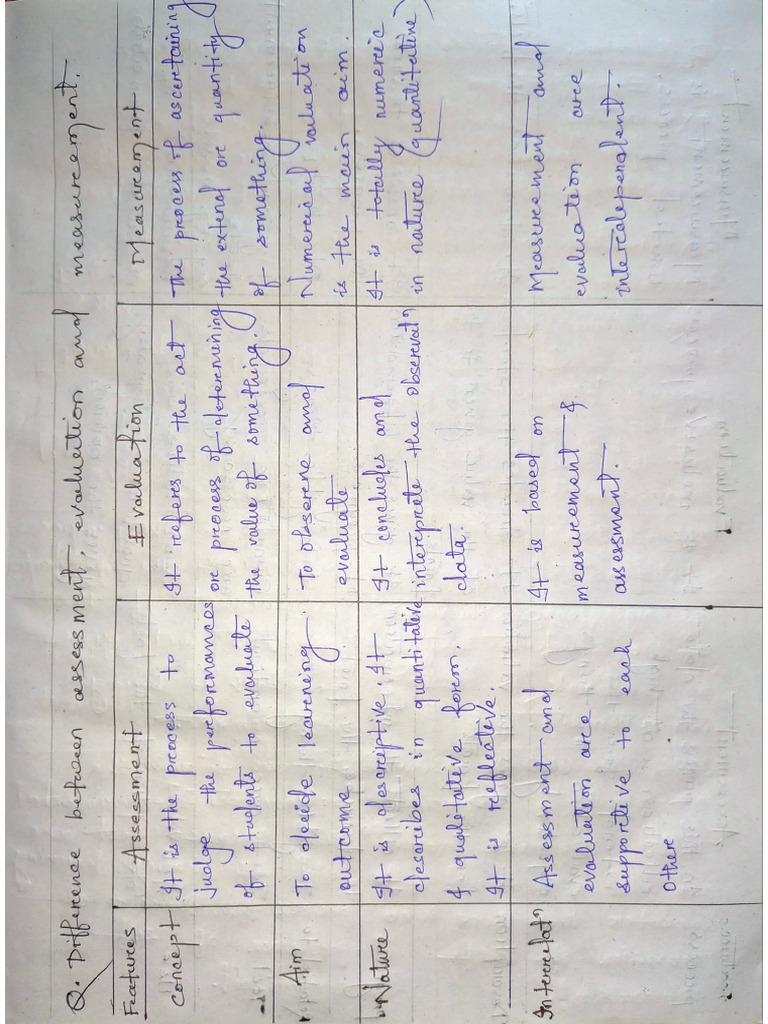 Q. Difference between assessment, evaluation and measurement.
Features
Assessment
Evaluation
Measurement
Concept
It is the process to
judge the performances
of students to evaluate
It refers to the act
or process of determining
the value of something.
The process of ascertaining
the extend or quantity
of something.
Aim
To decide learning
outcome
To observe and
evaluate
Numerical valuation
is the main aim.
Nature
It is descriptive. It
describes in quantitative
& qualitative form.
It is reflective.
It concludes and
interprete the observatn
data.
It is totally numeric
in nature (quantitative)
Interrelatn
Assessment and
evaluation are
supportive to each
other
It is based on
measurement &
assessment.
Measurement and
evaluation are
interdependent.